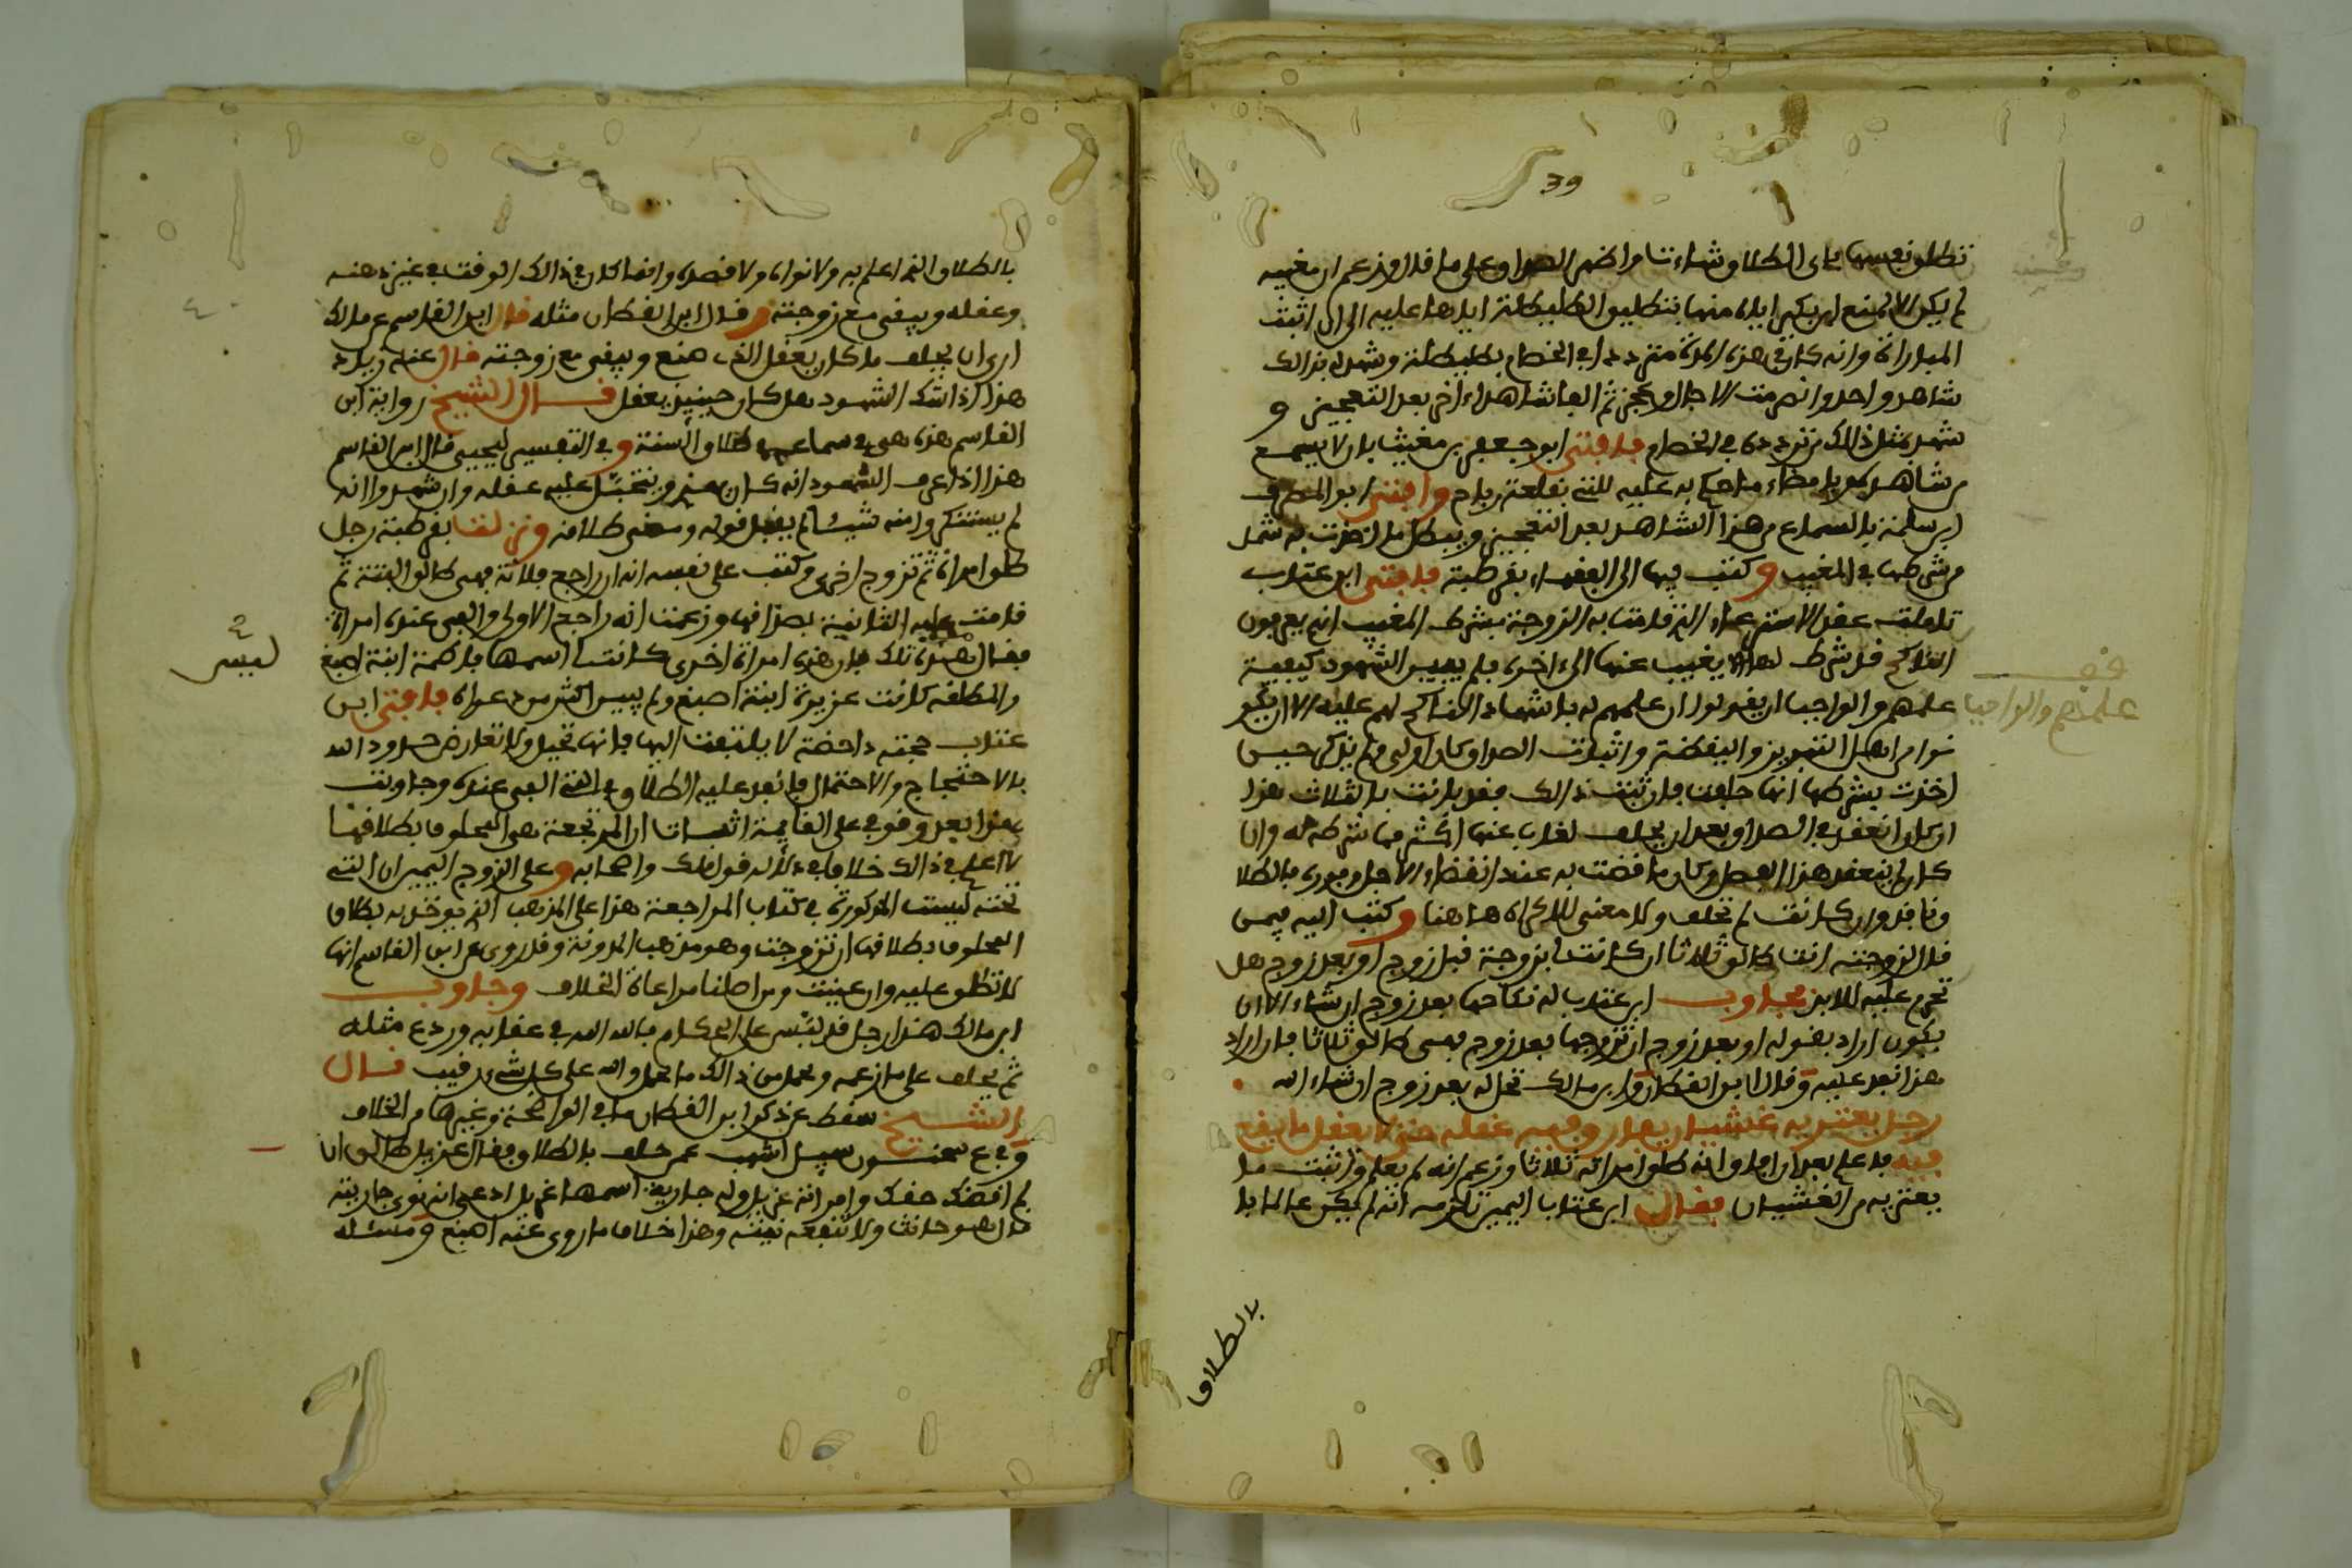 39
تطلق نفسها باى الطلاق شاءت اخر الصداق على ما قال وزعم ان مغيبه
لم يكن الا لمنع ابن بكير اياه منها بتطليق الطليطلة اياها عليه الى ان اثبت
المباراة وانه كان في هذه المدة متردد في الخصام بطليطلة وشهد له بذلك
شاهد واحد وانصرمت الاجال وعجز ثم الفا شاهدا اخر بعد التعجيز و
شهد بمثل ذلك من تردده في الخصام فافتى ابو جعفر بن مغيث بان لا يسمع
من شاهد بعد امضاء ما حكم به عليه للتي بقلعة رباح وافتى ابو المطرف
ابن سلمة بالسماع من هذا الشاهد بعد التعجيز ويبطل ما اخذت به شهد
من شرطها في المغيب وكتب فيها الى الفقهاء بقرطبة فافتى ابن عتاب
تاملت عقد الاسترعاء الذي قامت به الزوجة بشرط المغيب انهم يعرفون
الناكح قد شرط لها الا يغيب عنها الى اخره فلم يبين الشهود كيفية
علمهم والواجب ان يقولوا ان علمهم له باشهاد الناكح لهم عليه الا ان يكو
نوا من اهل التبريز واليقظة واثبات الصداق كان اولى ولم يذكر حين
اخذت بشرطها انها حلفت فان ثبت ذلك فقد بانت بالثلاث هذا
ان كان انعقد في الصداق بعد ان يحلف لغاب عنها اكثر مما شرطه له وان
كان لم ينعقد هذا الفصل وكان ما قضت به عند انقضاء الاجل وفوره فالطلا
ق نافذ وان كانت لم تحلف ولا معنى للاكراه هاهنا وكتب اليه فيمن
قال لزوجته انت طالق ثلاثا ان كانت لي بزوجة قبل زوج او بعد زوج هل
تحرم عليه للابد فجاوب ابن عتاب له نكاحها بعد زوج ان شاء الا ان
يكون اراد بقوله او بعد زوج ان تزوجها بعد زوج فهى طالق ثلاثا فان اراد
هذا نفذ عليه وقال ابن القطان وابن مالك تحل له بعد زوج ان شاء الله
رجل يعتريه غشيان يفارق فيه عقله حتى لا يعقل ما يقع
فيه فادعى بعد ان افاق انه طلق امراته ثلاثا وزعم انه لم يعلم واثبت ما
يعتريه من الغشيان فقال ابن عتاب اليمين تلزمه انه لم يكن عالما با
بالطلاق
علمهم والواجب
بالطلاق الذي اعلم به ولا نواه ولا قصده وانما كان في ذلك الوقت في غير ذهنه
وعقله ويبقى مع زوجته وقال ابن القطان مثله قال ابن القاسم عن مالك
ارى ان يحلف ما كان يعقل الذي صنع ويبقى مع زوجته قال عنه زياد
هذا اذا شك الشهود هل كان حينئذ يعقل قال الشيخ رواية ابن
القاسم هذه هى في سماع عيسى طلاق السنة وفي التفسير ليحيى قال ابن القاسم
هذا اذا عرف الشهود انه كان يهذي ويتخبل عليه عقله وان شهدوا انه
لم يستنكروا منه شيئا لم يقبل قوله ومضى طلاقه ونزلت بقرطبة رجل
طلق امراة ثم تزوج اخرى وكتب على نفسه انه ان راجع فلانة فهى طالق البتة ثم
قامت عليه الثانية بصداقها وزعمت انه راجع الاولى والفى عنده امراة
فقال ليست تلك فان هذه امراة اخرى كانت اسمها فاطمة ابنة اصبغ
والمطلقة كانت عزيزة ابنة اصبغ ولم يبين اكثر من دعواه فافتى ابن
عتاب حجته داحضة لا يلتفت اليها فانها تحيل ولا تعارض حدود الله
بالاحتجاج والاحتمال فانفذ عليه الطلاق في التي الفى عنده وجاوبت
هذا بعد وقوفي على القايمة اثبات ان المرتجعة هى المحلوف بطلاقها
لا اعلم في ذلك خلافا في دلالة قول مالك واصحابه وعلى الزوج اليمين ان التي
تحته ليست المذكورة في كتاب المراجعة هذا على المذهب الذي يوخذ به بطلاق
المحلوف بطلاقها ان تزوجت وهو مذهب المدونة وقد روى عن ابن القاسم انها
لا تطلق عليه وان عينت ومن اصلنا مراعاة الخلاف وجاوب
ابن مالك هذا رجل قد لبس على الحكام فالله الله في عقابه وردع مثله
ثم يحلف على ما زعمه وتحمل من ذلك ما تحمل والله على كل شىء رقيب قال
الشيخ سقط عن ذكر ابن القطان ما في الواضحة وغيرها من الخلاف
وفي ع سحنون سيل اشهب عمن حلف بالطلاق فقال غزيل طالق ان
لم اقضك حقك وامراته غزيل وله جارية اسمها غزيل ادعى انه نوى جاريته
قال هو حانث ولا تنفعه نيته وهذا خلاف ما روى عنه اصبغ ومسئله
ليست